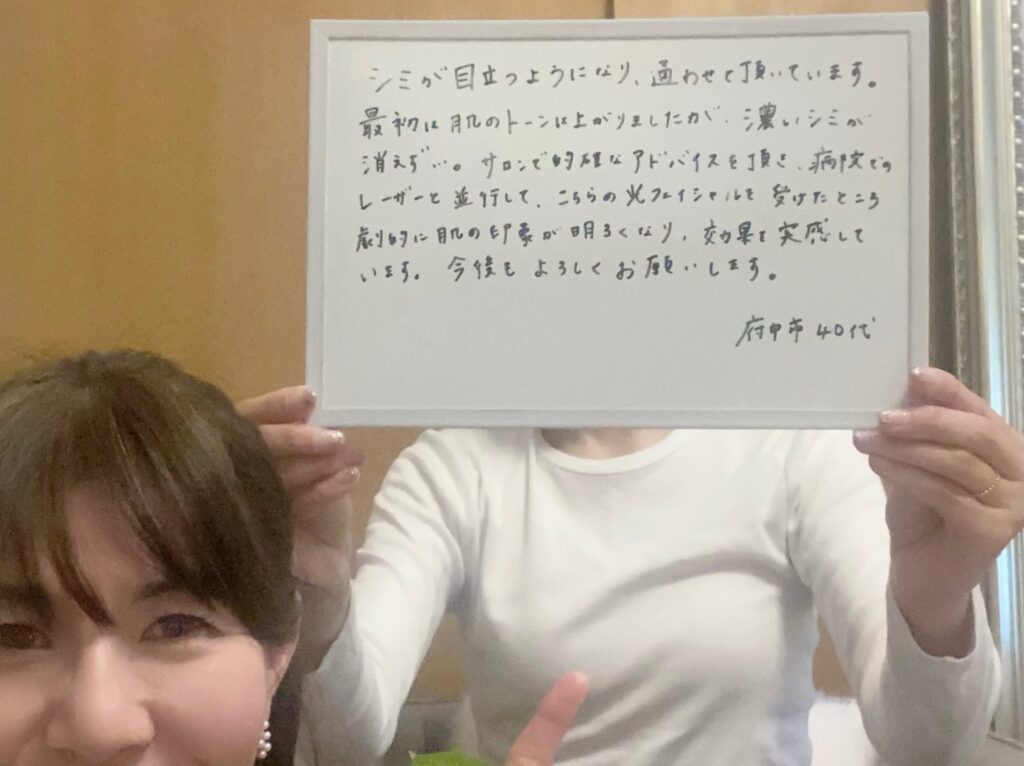 シミが目立つようになり、通わせて頂いています。
最初は肌のトーンは上がりましたが、濃いシミが
消えず…。サロンで的確なアドバイスを頂き、病院での
レーザーと並行して、こちらの光フェイシャルを受けたところ
劇的に肌の印象が明るくなり、効果を実感して
います。今後もよろしくお願いします。
府中市 40代